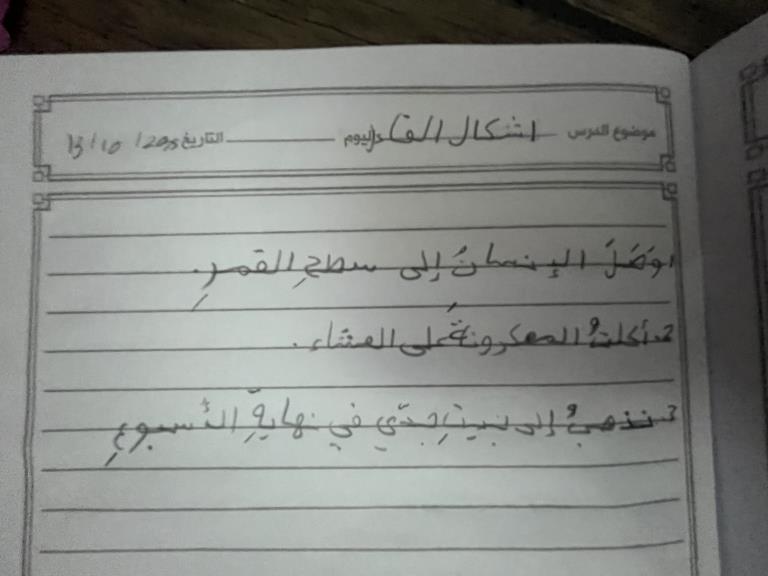 موضوع الدرس اشكال الفاعل اليوم التاريخ 13/10/205
1 وَصَلَ الإنسانُ إلى سطحِ القمرِ.
2. أكلتُ المعكرونةَ على العشاء.
3 نذهبُ إلى بيتِ جدّي في نهايةِ الأسبوعِ